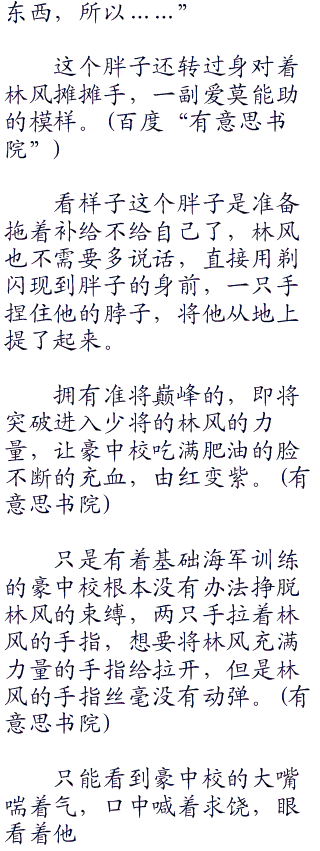 东西，所以……”
这个胖子还转过身对着
林风摊摊手，一副爱莫能助
的模样。(百度“有意思书
院”)
看样子这个胖子是准备
拖着补给不给自己了，林风
也不需要多说话，直接用剃
闪现到胖子的身前，一只手
捏住他的脖子，将他从地上
提了起来。
拥有准将巅峰的，即将
突破进入少将的林风的力
量，让豪中校吃满肥油的脸
不断的充血，由红变紫。(有
意思书院)
只是有着基础海军训练
的豪中校根本没有办法挣脱
林风的束缚，两只手拉着林
风的手指，想要将林风充满
力量的手指给拉开，但是林
风的手指丝毫没有动弹。(有
意思书院)
只能看到豪中校的大嘴
喘着气，口中喊着求饶，眼
看着他